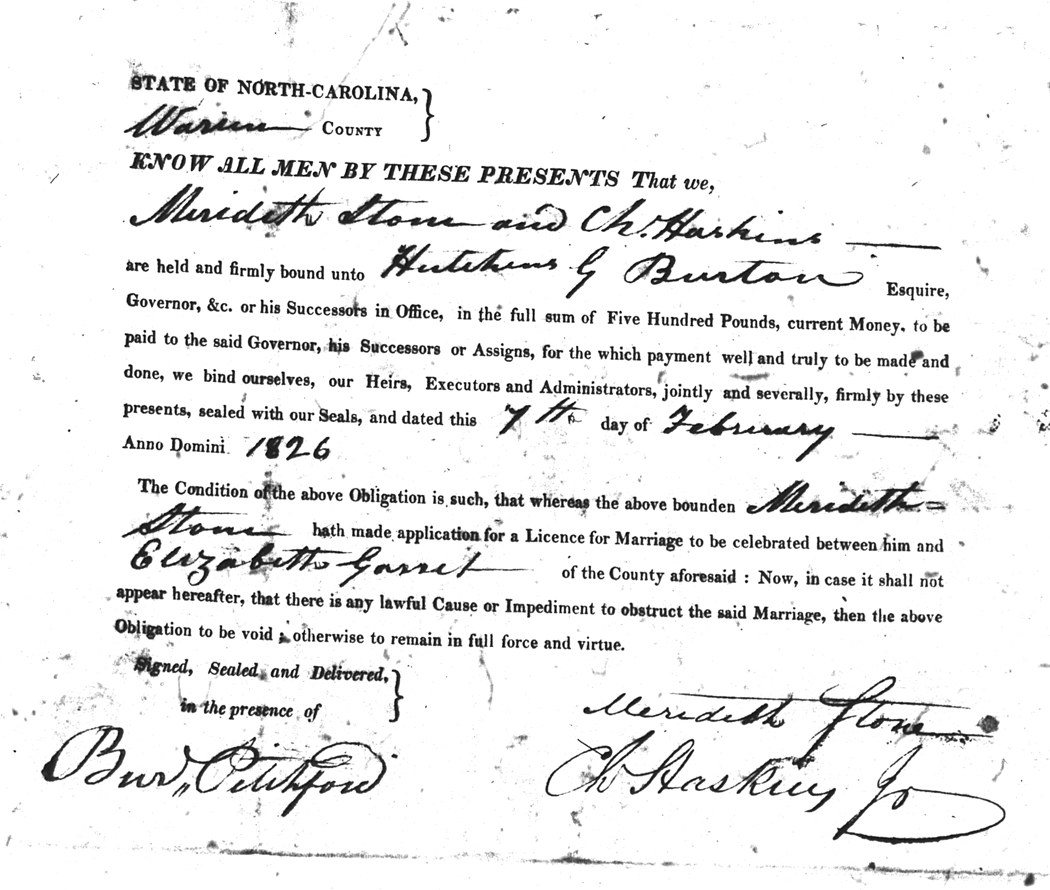 STATE OF NORTH-CAROLINA,
Warren COUNTY
KNOW ALL MEN BY THESE PRESENTS That we,
Merideth Stone and Ch. Haskins
are held and firmly bound unto Hutchens G Burton Esquire,
Governor, &c. or his Successors in Office, in the full sum of Five Hundred Pounds, current Money. to be
paid to the said Governor, his Successors or Assigns, for the which payment well and truly to be made and
done, we bind ourselves, our Heirs, Executors and Administrators, jointly and severally, firmly by these
presents, sealed with our Seals, and dated this 7th day of February
Anno Domini 1826
The Condition of the above Obligation is such, that whereas the above bounden Merideth
Stone hath made application for a Licence for Marriage to be celebrated between him and
Elizabeth Garret of the County aforesaid : Now, in case it shall not
appear hereafter, that there is any lawful Cause or Impediment to obstruct the said Marriage, then the above
Obligation to be void ; otherwise to remain in full force and virtue.
Signed, Sealed and Delivered,
in the presence of
Merideth Stone
Ch Haskins Jr
Pitchford